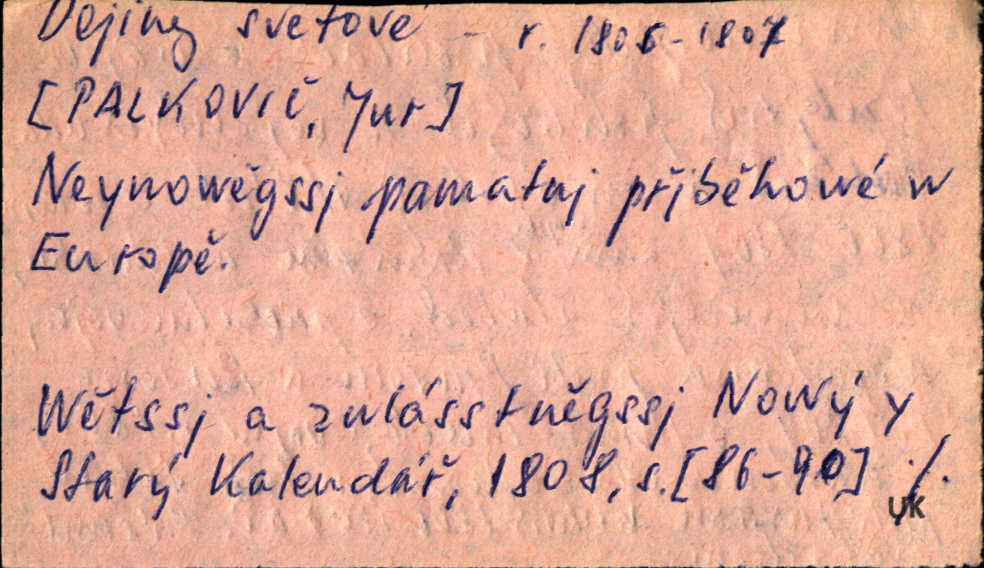 Dejiny svetové - r. 1806-1807
[PALKOVIČ, Jur]
Neynowěgssj pamatnj přjběhowé w
Europě.
Wětssj a zwlásstněgssj Nowý y
Starý Kalendář, 1808, s.[86-90] ./.
UK